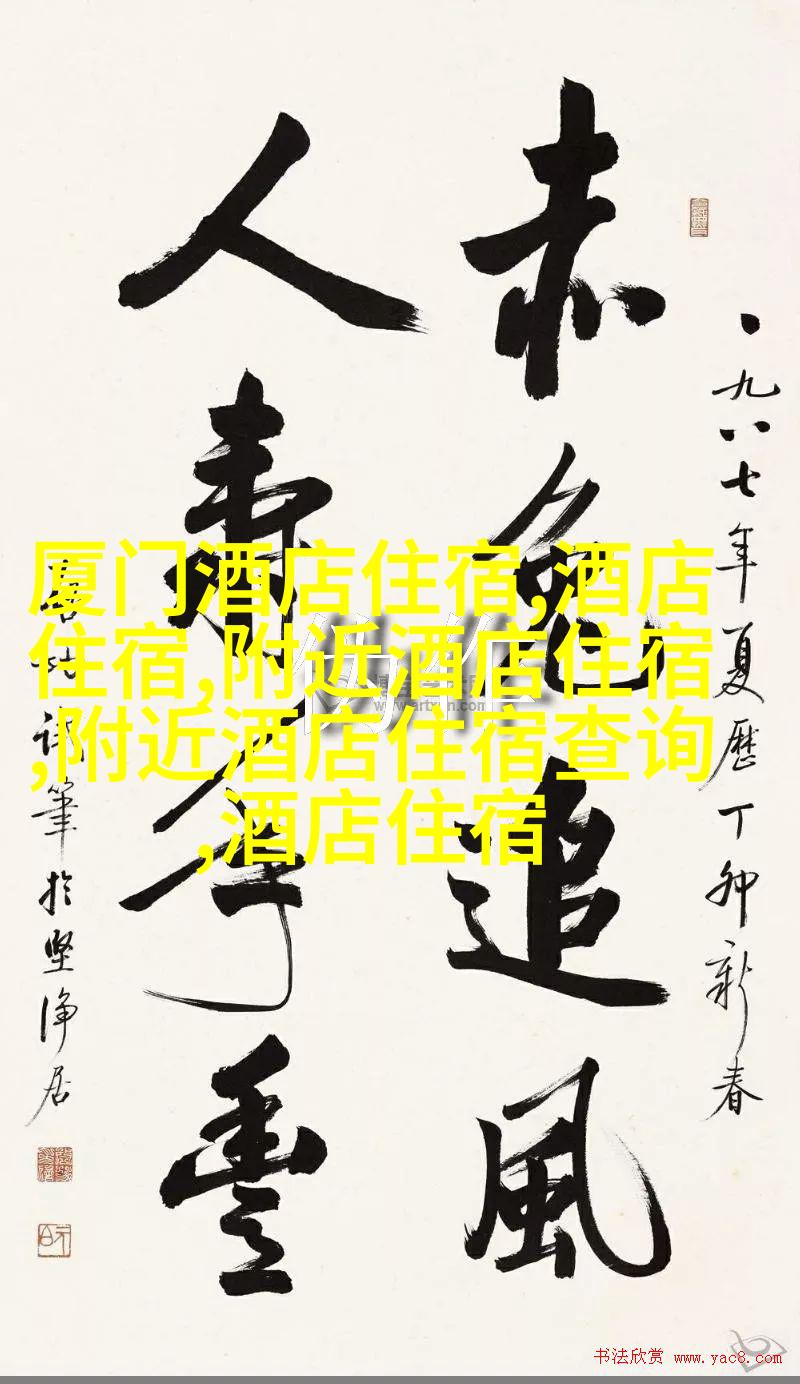 赤兔追風
人壽年豐
一九八七年夏歷丁卯新春
啓功試筆於堅淨居
厦门酒店住宿,酒店
住宿,附近酒店住宿
,附近酒店住宿查询
,酒店住宿
书法欣赏 www.yac8.com